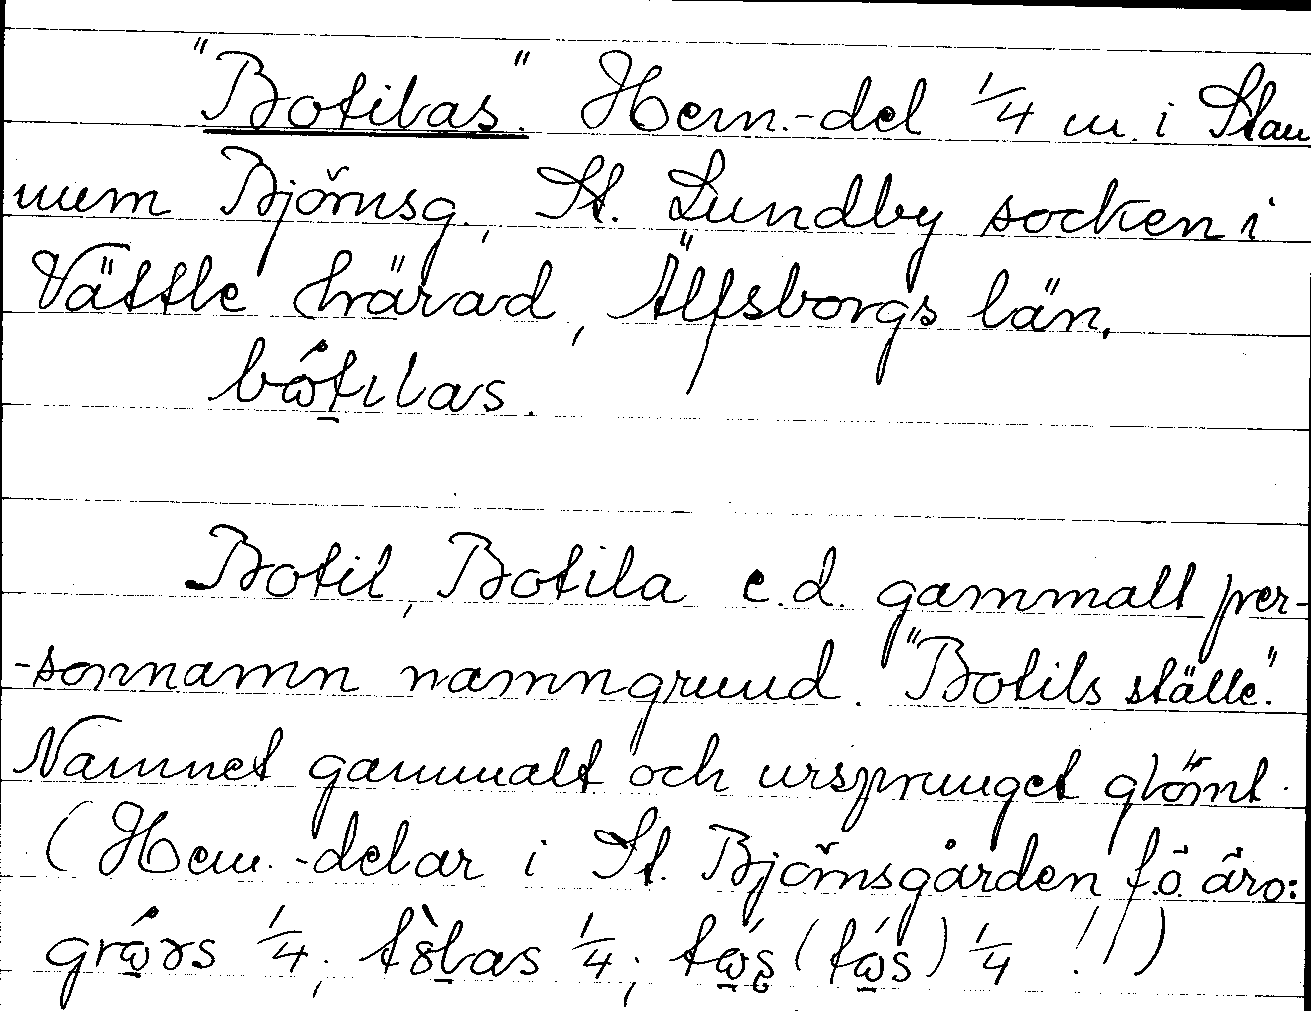 "Botilas". Hem.-del 1/4 m. i Stan
num Björnsg., St. Lundby socken i
Vättle härad, Älfsborgs län.
bώtılas.
Botil, Botila e.d. gammalt per-
-sonnamn namngrund. "Botils ställe".
Namnet gammalt och ursprunget glömt.
(Hem.-delar i St. Björnsgården f.ö. äro:
1/4; 1/4; 1/4 !!)